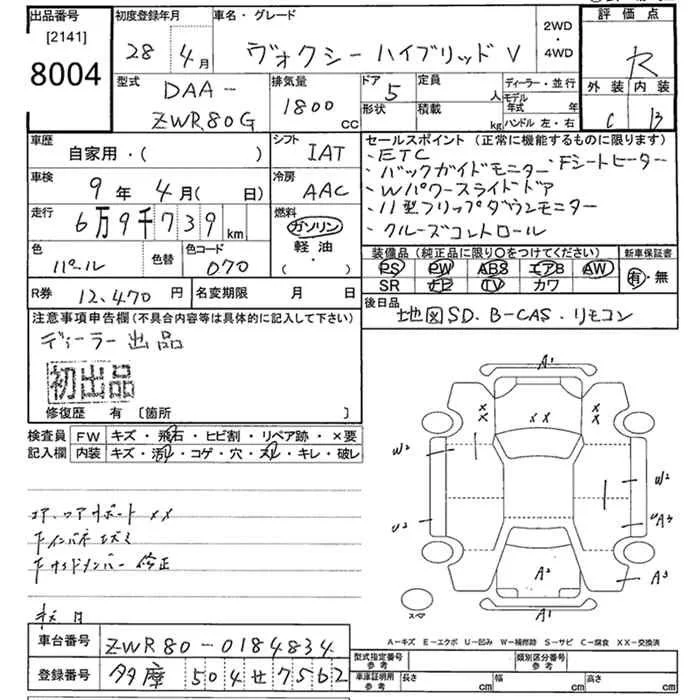 出品番号
[2141]
8004
初度登録年月
28年 4月
車名・グレード
ヴォクシーハイブリッド V
2WD
・
4WD
評価点
R
外装 内装
C B
型式
DAA-
ZWR80G
排気量
1800 cc
ドア 5
形状
定員 人
積載 kg
ディーラー・並行
モデル年式 年
ハンドル 左・右
車歴
自家用・( )
シフト
IAT
車検
9年 4月( 日)
冷房
AAC
走行
6万9千739km
燃料
ガソリン
軽油
( ・ )
色
パール
色替
色コード
070
R券 12,470円
名変期限 月 日
セールスポイント(正常に機能するものに限ります)
・ETC
・バックガイドモニター ・Fシートヒーター
・Wパワースライドドア
・11型フリップダウンモニター
・クルーズコントロール
装備品(純正品に限り○をつけてください)
PS PW ABS エアB AW
SR ナビ TV カワ
新車保証書
有・無
後日品
地図SD. B-CAS. リモコン
注意事項申告欄(不具合内容等は具体的に記入して下さい)
ディーラー出品
初出品
修復歴 有 [箇所 ]
検査員記入欄
FW キズ・飛石・ヒビ割・リペア跡・×要
内装 キズ・汚レ・コゲ・穴・スレ・キレ・破レ
コア、コアサポート XX
修正
A1
XX
XX
XX
W2
U2
W2
UA3
A3
A2
A1
スペア
A-キズ E-エクボ U-凹み W-補修跡 S-サビ C-腐食 XX-交換済
車台番号 ZWR80-0184834
登録番号 多摩 504 せ 7562
型式指定番号 参考
類別区分番号 参考
車庫証明用 参考
長さ cm 幅 cm 高さ cm